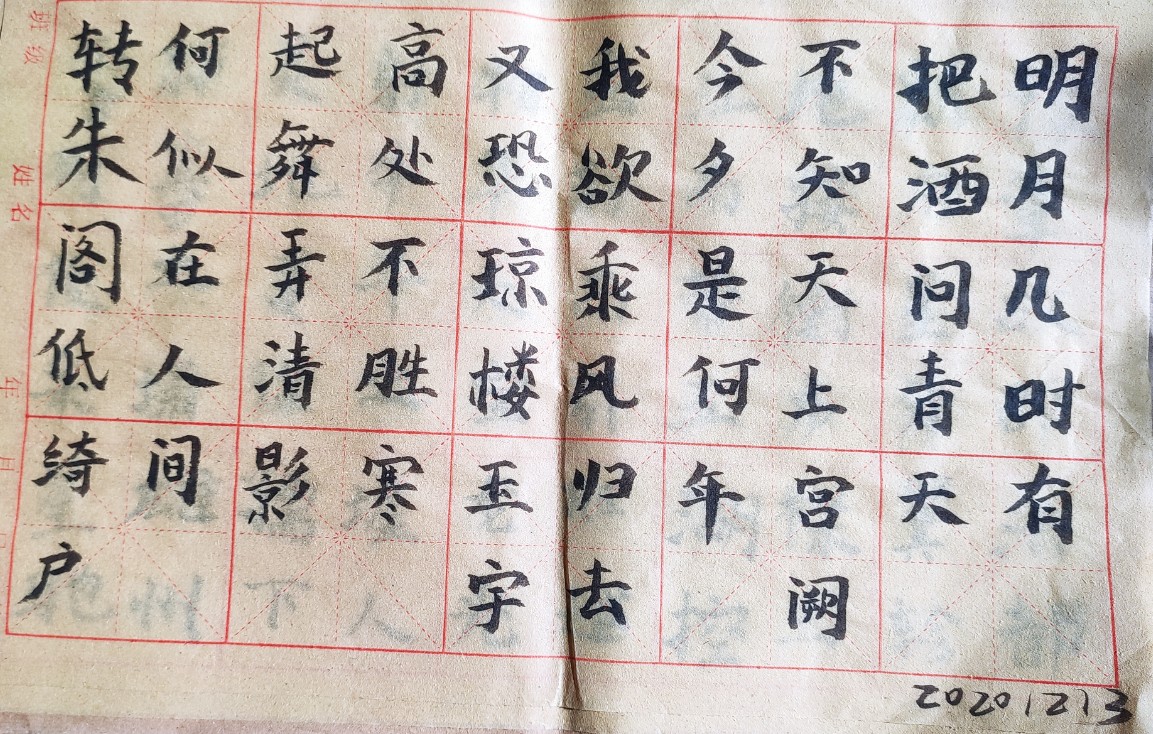 明月几时有
把酒问青天
不知天上宫阙
今夕是何年
我欲乘风归去
又恐琼楼玉宇
高处不胜寒
起舞弄清影
何似在人间
转朱阁低绮户
班级
姓名
年
月
日
20201213